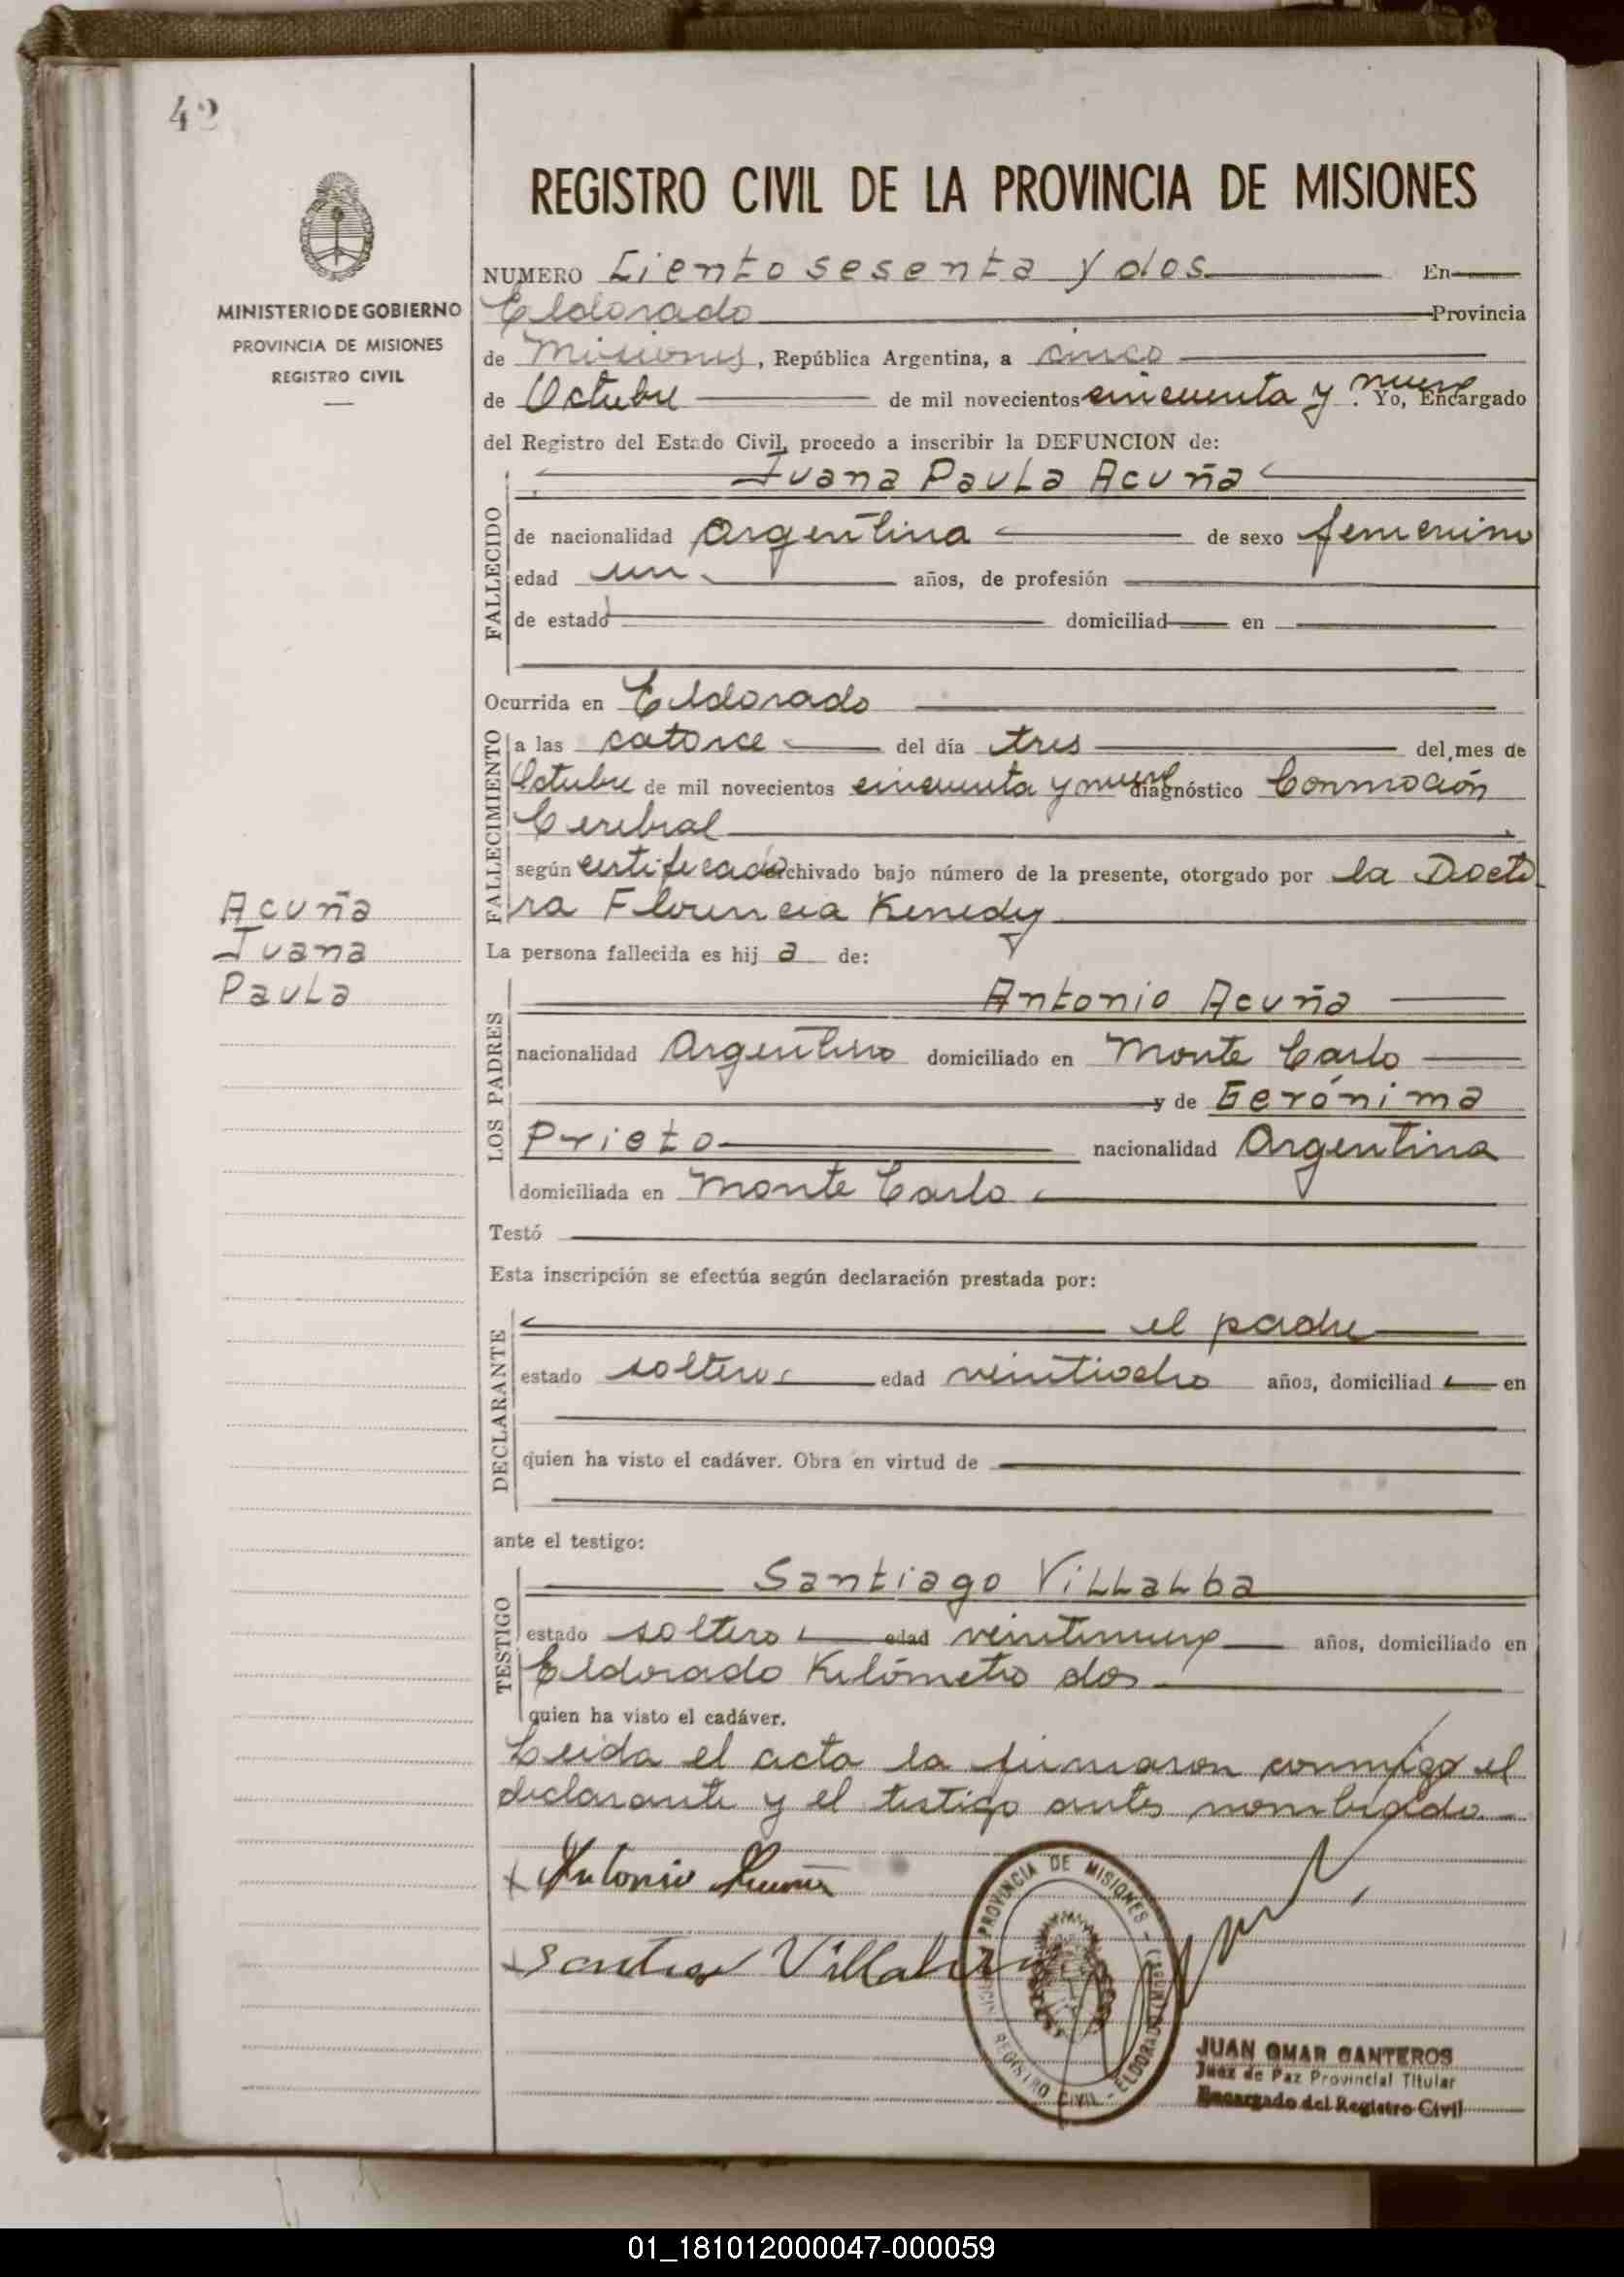 42
MINISTERIO DE GOBIERNO
PROVINCIA DE MISIONES
REGISTRO CIVIL
REGISTRO CIVIL DE LA PROVINCIA DE MISIONES
NUMERO Ciento sesenta y dos En
Eldorado Provincia
de Misiones, República Argentina, a cinco
de Octubre de mil novecientos cincuenta y nueve. Yo, Encargado
del Registro del Estado Civil, procedo a inscribir la DEFUNCION de:
FALLECIDO
Juana Paula Acuña
de nacionalidad Argentina de sexo femenino
edad un años, de profesión
de estado domiciliad en
Ocurrida en Eldorado
FALLECIMIENTO
a las catorce del día tres del mes de
Octubre de mil novecientos cincuenta y nueve diagnóstico Conmoción
Cerebral
según certificado archivado bajo número de la presente, otorgado por la Docto
ra Florencia Kenedy
Acuña
Juana
Paula
La persona fallecida es hija de:
LOS PADRES
Antonio Acuña
nacionalidad Argentino domiciliado en Monte Carlo
y de Gerónima
Prieto nacionalidad Argentina
domiciliada en Monte Carlo
Testó
Esta inscripción se efectúa según declaración prestada por:
DECLARANTE
el padre
estado soltero edad veintiocho años, domiciliad en
quien ha visto el cadáver. Obra en virtud de
ante el testigo:
TESTIGO
Santiago Villalba
estado soltero edad veintinueve años, domiciliado en
Eldorado Kilómetro dos
quien ha visto el cadáver.
Leida el acta la firmaron conmigo el
declarante y el testigo antes nombrado
Antonio Acuña
Santiago Villalba
PROVINCIA DE MISIONES
REGISTRO CIVIL - ELDORADO
JUAN OMAR CANTEROS
Juez de Paz Provincial Titular
Encargado del Registro Civil
01_181012000047-000059